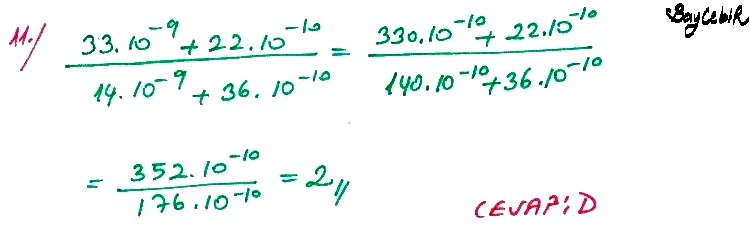 BayCebiR
11.) (33.10⁻⁹ + 22.10⁻¹⁰) / (14.10⁻⁹ + 36.10⁻¹⁰) = (330.10⁻¹⁰ + 22.10⁻¹⁰) / (140.10⁻¹⁰ + 36.10⁻¹⁰)
= (352.10⁻¹⁰) / (176.10⁻¹⁰) = 2//
CEVAP: D